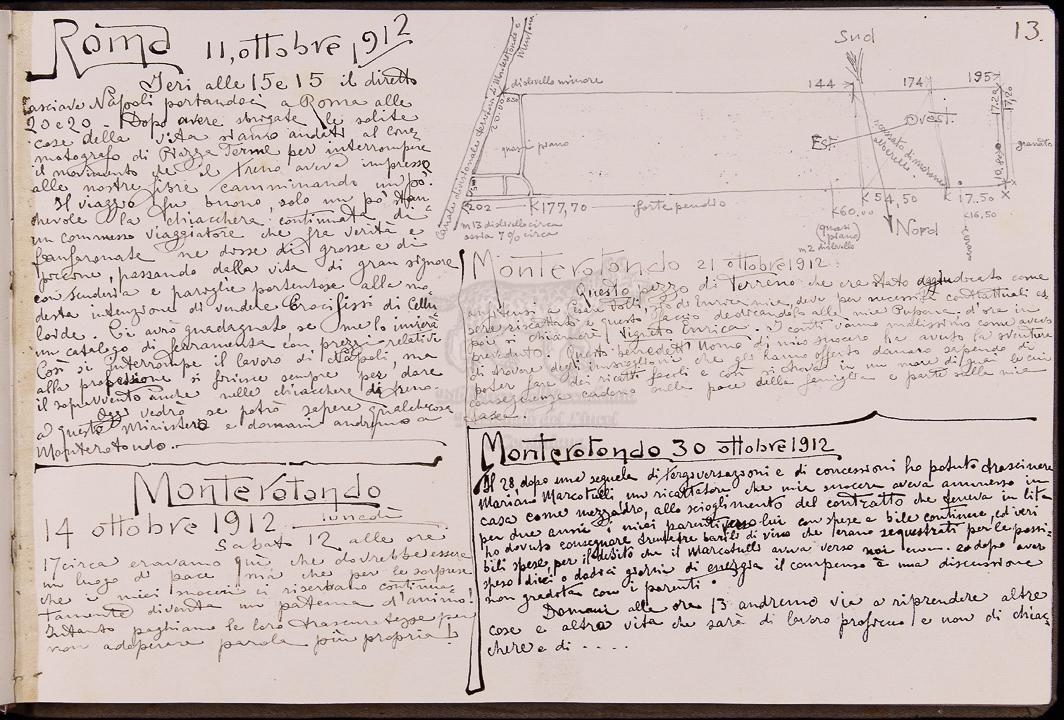 13.
Roma 11, ottobre 1912
Ieri alle 15 e 15 il diretto
lasciava Napoli portandoci a Roma alle
20 e 20 - Dopo avere sbrigate le solite
cose della vita siamo andati al cine-
matografo di Piazza Termi per interrompere
il movimento che il treno aveva impresso
alle nostre fibre camminando un po'.
Il viaggio fu buono, solo un po' stan-
chevole la chiacchera continuata di
un commesso viaggiatore che fra verità e
fanfaronate ne disse di grosse e di
piccone, passando della vita di gran signore
con scuderia e pariglie portentose alla mo-
desta intenzione di vendere Crocifissi di Cellu
loide. Ci avrà guadagnato se me lo invierà
un catalogo di ferramenta con prezzi relativi
Così si interrompe il lavoro di Napoli, ma
alla professione si finisce sempre per dare
il sopravvento anche nelle chiacchere di treno.
Oggi vedrò se potrò sapere qualchecosa
a questo Ministero e domani andremo a
Monterotondo.
Monterotondo
14 ottobre 1912 lunedì
Sabato 12, alle ore
17 circa eravamo qui, che dovrebbe essere
un luogo di pace, ma che per le sorprese
che i miei suoceri ci riserbano continua-
tamente diventa un patema d'animo!
Intanto paghiamo le loro trascuratezze per
non adoperare parola più propria!
Canale divisionale terreni di Monterotondo e Mentana
dislivello minore
20.00
quasi piano
K202
K177,70
forte pendio
m 13 dislivello circa
ossia 7% circa
Sud
144
174
195
Est
Ovest
Nord
17.20
17,20
10,80
granato
K60.00
(quasi piano)
m 2 dislivello
K54,50
17.50
K16,50
Monterotondo 21 ottobre 1912
Questo pezzo di terreno che era stato aggiudicato come
a Cesare Valli di Enrica mia, deve per necessità contrattuali es-
sere riscattato e questo faccio dedicandolo alla mia Pupona. d'ora in
poi si chiamerà, Vigneto Enrica. I conti vanno malissimo come avevo
preveduto. Questi benedetti Uomo di mio suocero ha avuto la sventura
di trovare degli usurai che gli hanno offerto danaro sapendo di
poter fare dei ricatti facoli e così si trova in un mare di guai le cui
conseguenze cadono sulla pace della famiglia e parte sulla mia
tasca.
Monterotondo 30 ottobre 1912
Il 28 dopo una sequela di tergiversazioni e di concessioni ho potuto trascinare
Mariano Marcotulli un ricattatore che mia suocera aveva ammesso in
casa come mezzadro, allo scioglimento del contratto che teneva in lite
per due annie i miei parenti verso lui con spese e bile continue, ed ieri
ho dovuto consegnare trentatre barili di vino che erano sequestrati per le possi-
bili spese, per il debito che il Marcotulli aveva verso noi ecc. e dopo aver
speso dieci o dodici giorni di energia il compenso è una discussione
non gradita con i parenti.
Domani alla ore 13 andremo via a riprendere altre
cose e altra vita che sarà di lavoro proficuo e non di chiac-
chere e di ....